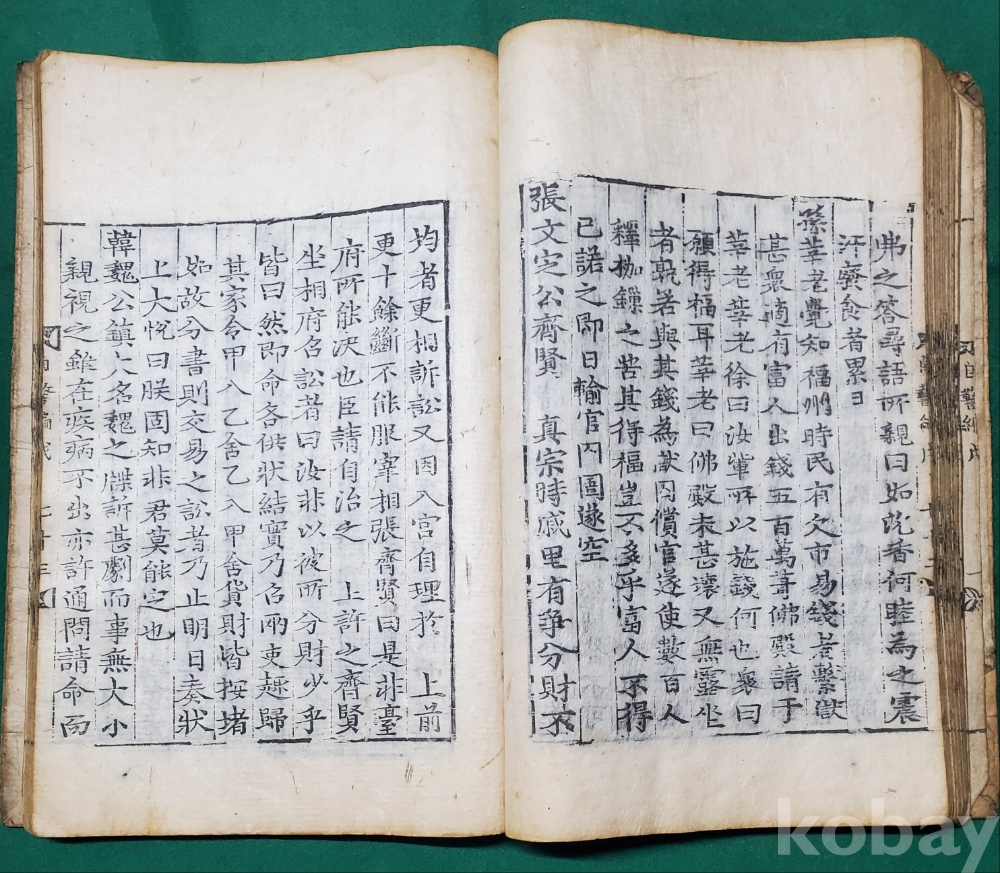 弗之答尋語所親曰如此香何睦為之震
汗廢食者累日
孫莘老覺知福州時民有欠市易錢者繫獄
甚衆適有富人出錢五百萬葺佛殿請于
莘老莘老徐曰汝輩所以施錢何也衆曰
願得福耳莘老曰佛殿未甚壞又無露坐
者孰若與其錢為獄囚償官遂使數百人
釋枷鏁之苦其得福豈不多乎富人不得
已諾之即日輸官囹圄遂空
張文定公齊賢 真宗時戚里有爭分財不
均者更相訴訟又因入宮自理於 上前
更十餘斷不能服宰相張齊賢曰是非臺
府所能决也臣請自治之 上許之齊賢
坐相府召訟者曰汝非以彼所分財少乎
皆曰然即命各供狀結實乃召兩吏趣歸
其家令甲入乙舍乙入甲舍貨財皆按堵
如故分書則交易之訟者乃止明日奏狀
上大悅曰朕固知非君莫能定也
韓魏公鎮大名魏之牒訴甚劇而事無大小
親視之雖在疾病不出亦許通問請命而
自警編
kobay